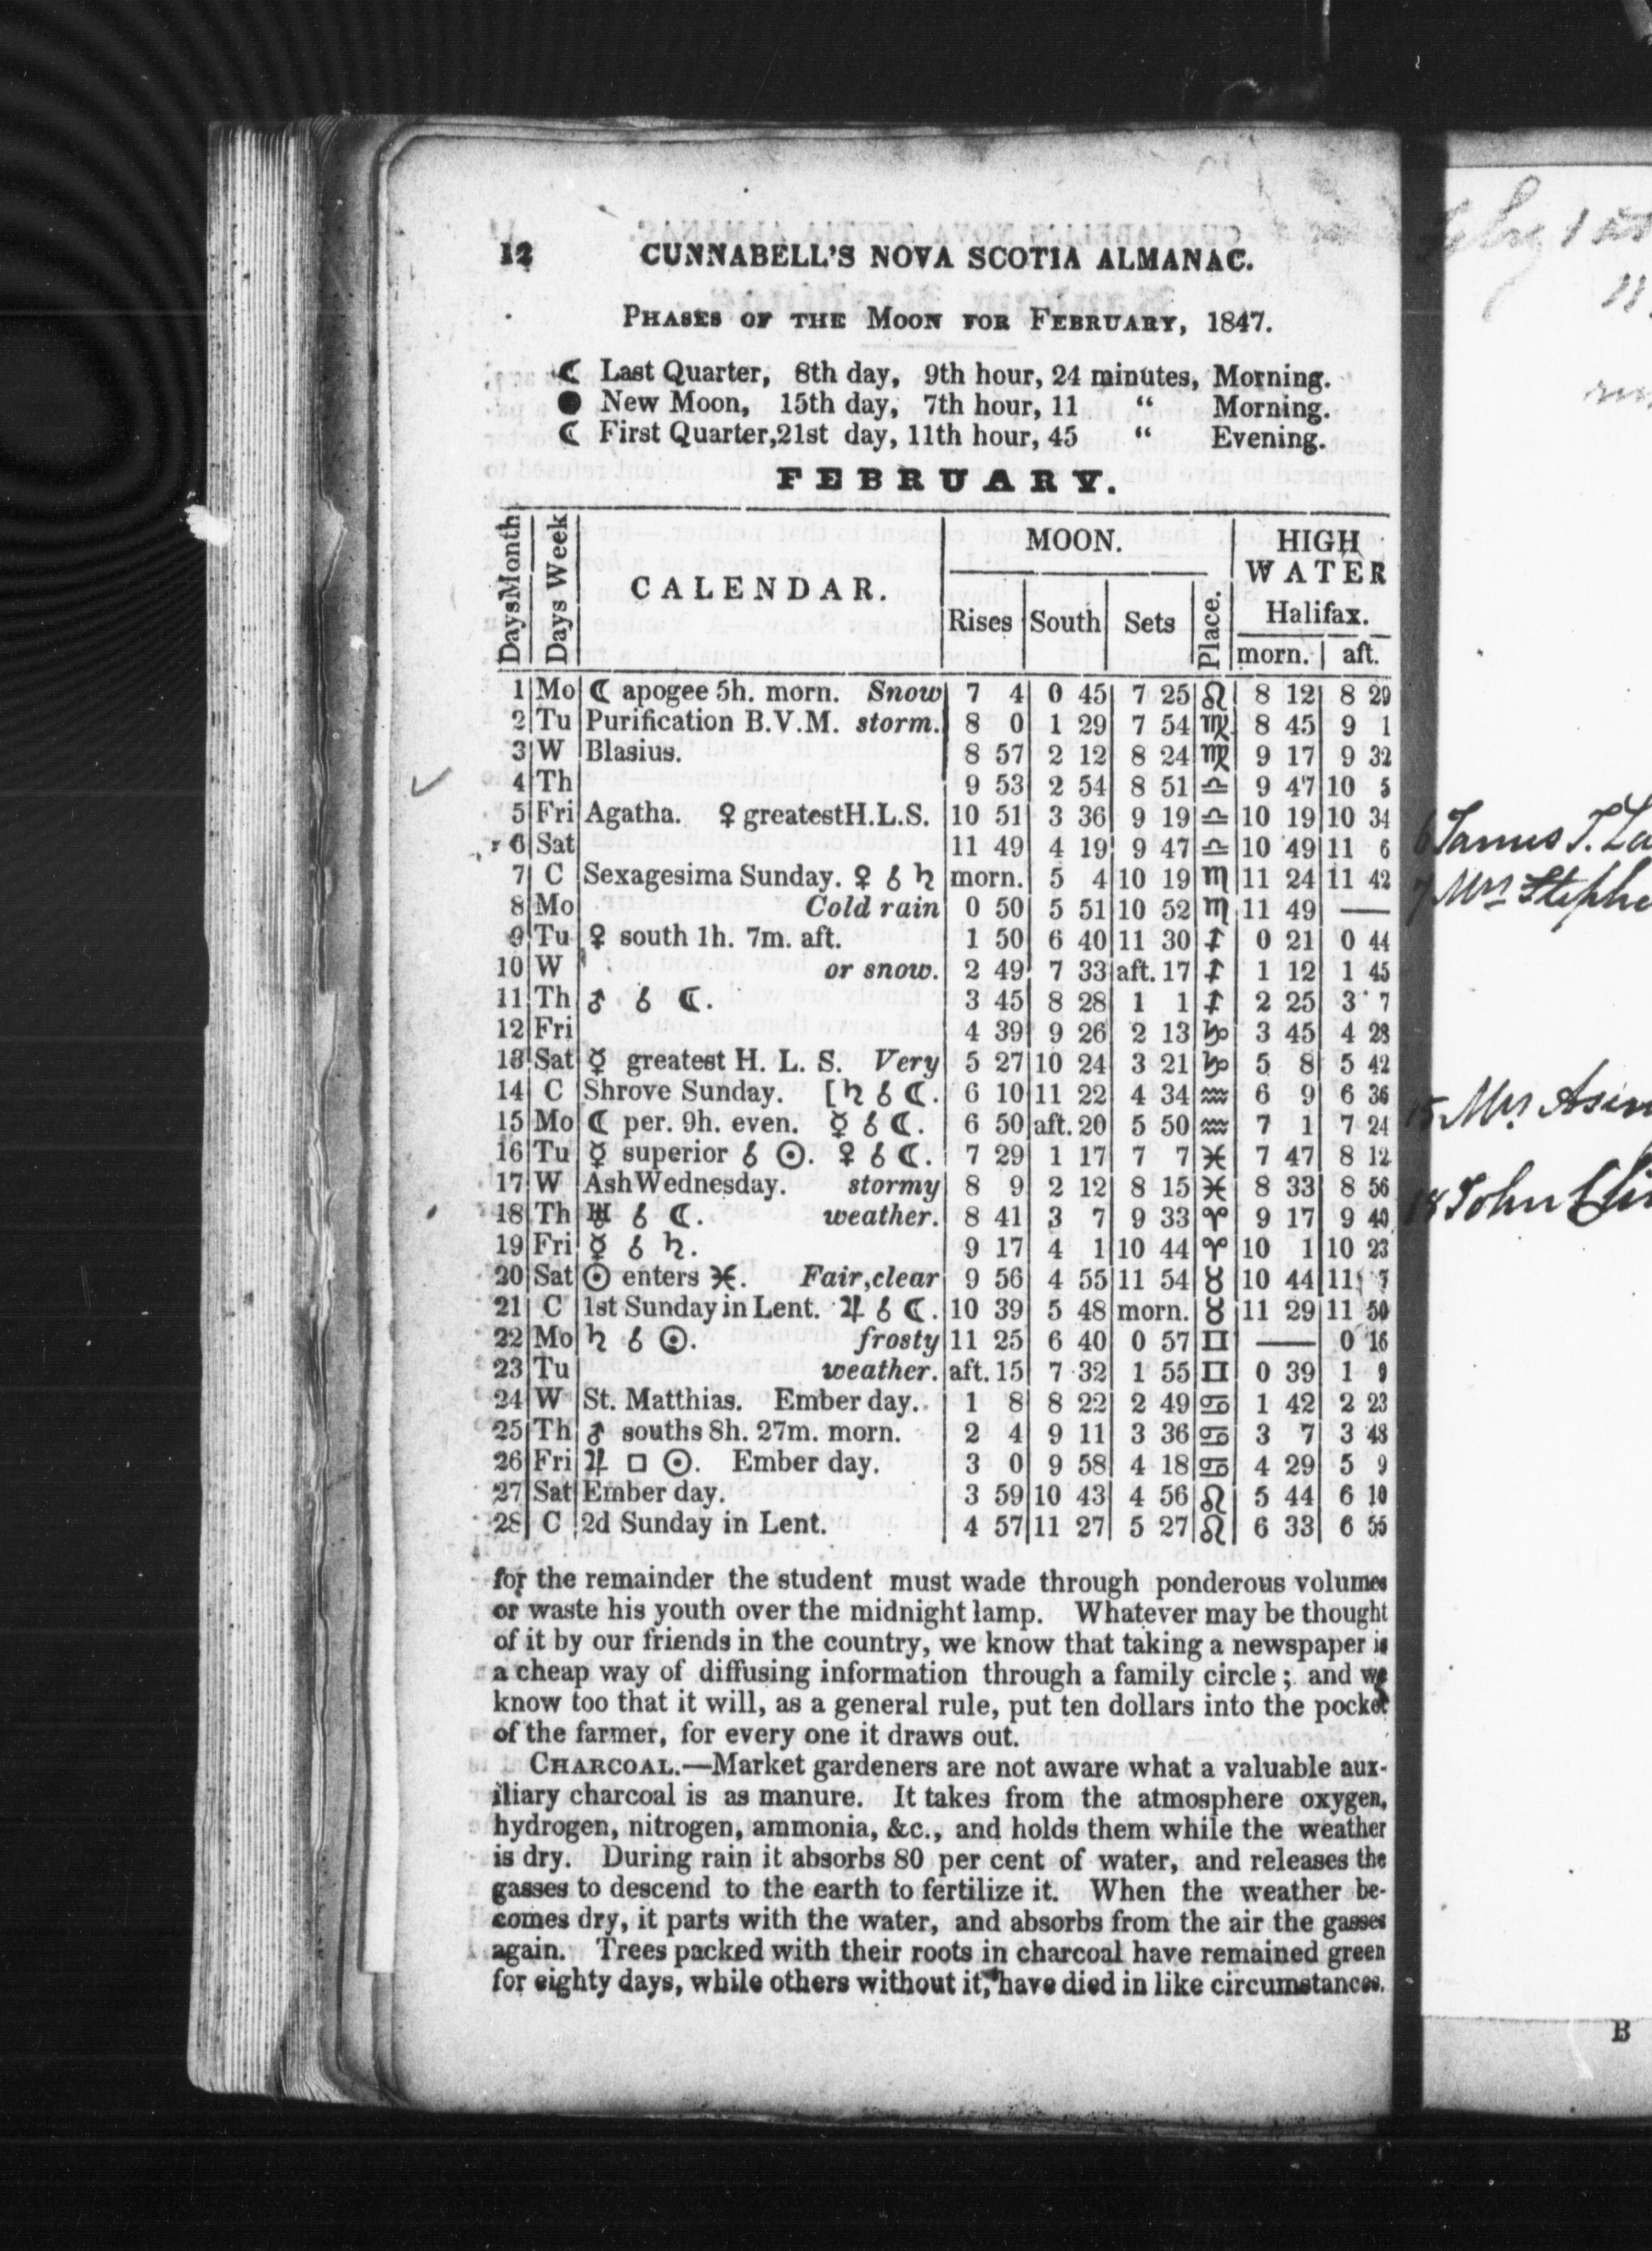 12 CUNNABELL'S NOVA SCOTIA ALMANAC.
PHASES OF THE MOON FOR FEBRUARY, 1847.
☾ Last Quarter, 8th day, 9th hour, 24 minutes, Morning.
● New Moon, 15th day, 7th hour, 11 “ Morning.
☾ First Quarter, 21st day, 11th hour, 45 “ Evening.
FEBRUARY.
Days Month Days Week CALENDAR. MOON. HIGH WATER Halifax.
Rises South Sets Place. morn. aft.
1 Mo ☾ apogee 5h. morn. Snow 7 4 0 45 7 25 ♌ 8 12 8 29
2 Tu Purification B.V.M. storm. 8 0 1 29 7 54 ♍ 8 45 9 1
3 W Blasius. 8 57 2 12 8 24 ♍ 9 17 9 32
4 Th 9 53 2 54 8 51 ♎ 9 47 10 5
5 Fri Agatha. ♀ greatest H.L.S. 10 51 3 36 9 19 ♎ 10 19 10 34
6 Sat 11 49 4 19 9 47 ♎ 10 49 11 6
7 C Sexagesima Sunday. ♀ ☌ ♄ morn. 5 4 10 19 ♏ 11 24 11 42
8 Mo Cold rain 0 50 5 51 10 52 ♏ 11 49 —
9 Tu ♀ south 1h. 7m. aft. 1 50 6 40 11 30 ♐ 0 21 0 44
10 W or snow. 2 49 7 33 aft. 17 ♐ 1 12 1 45
11 Th ♂ ☌ ☾. 3 45 8 28 1 1 ♐ 2 25 3 7
12 Fri 4 39 9 26 2 13 ♑ 3 45 4 28
13 Sat ☿ greatest H. L. S. Very 5 27 10 24 3 21 ♑ 5 8 5 42
14 C Shrove Sunday. [♄ ☌ ☾. 6 10 11 22 4 34 ♒ 6 9 6 36
15 Mo ☾ per. 9h. even. ☿ ☌ ☾. 6 50 aft. 20 5 50 ♒ 7 1 7 24
16 Tu ☿ superior ☌ ☉. ♀ ☌ ☾. 7 29 1 17 7 7 ♓ 7 47 8 12
17 W Ash Wednesday. stormy 8 9 2 12 8 15 ♓ 8 33 8 56
18 Th ♅ ☌ ☾. weather. 8 41 3 7 9 33 ♈ 9 17 9 40
19 Fri ☿ ☌ ♄. 9 17 4 1 10 44 ♈ 10 1 10 23
20 Sat ☉ enters ♓. Fair, clear 9 56 4 55 11 54 ♉ 10 44 11 7
21 C 1st Sunday in Lent. ♃ ☌ ☾. 10 39 5 48 morn. ♉ 11 29 11 50
22 Mo ♄ ☌ ☉. frosty 11 25 6 40 0 57 ♊ — 0 16
23 Tu weather. aft. 15 7 32 1 55 ♊ 0 39 1 9
24 W St. Matthias. Ember day. 1 8 8 22 2 49 ♋ 1 42 2 23
25 Th ♂ souths 8h. 27m. morn. 2 4 9 11 3 36 ♋ 3 7 3 48
26 Fri ♃ □ ☉. Ember day. 3 0 9 58 4 18 ♋ 4 29 5 9
27 Sat Ember day. 3 59 10 43 4 56 ♌ 5 44 6 10
28 C 2d Sunday in Lent. 4 57 11 27 5 27 ♌ 6 33 6 55
for the remainder the student must wade through ponderous volumes
or waste his youth over the midnight lamp. Whatever may be thought
of it by our friends in the country, we know that taking a newspaper is
a cheap way of diffusing information through a family circle; and we
know too that it will, as a general rule, put ten dollars into the pocket
of the farmer, for every one it draws out.
CHARCOAL.—Market gardeners are not aware what a valuable aux-
iliary charcoal is as manure. It takes from the atmosphere oxygen,
hydrogen, nitrogen, ammonia, &c., and holds them while the weather
is dry. During rain it absorbs 80 per cent of water, and releases the
gasses to descend to the earth to fertilize it. When the weather be-
comes dry, it parts with the water, and absorbs from the air the gasses
again. Trees packed with their roots in charcoal have remained green
for eighty days, while others without it, have died in like circumstances.
11
6 James T.
7 Mrs
15 Mrs
18 John
B